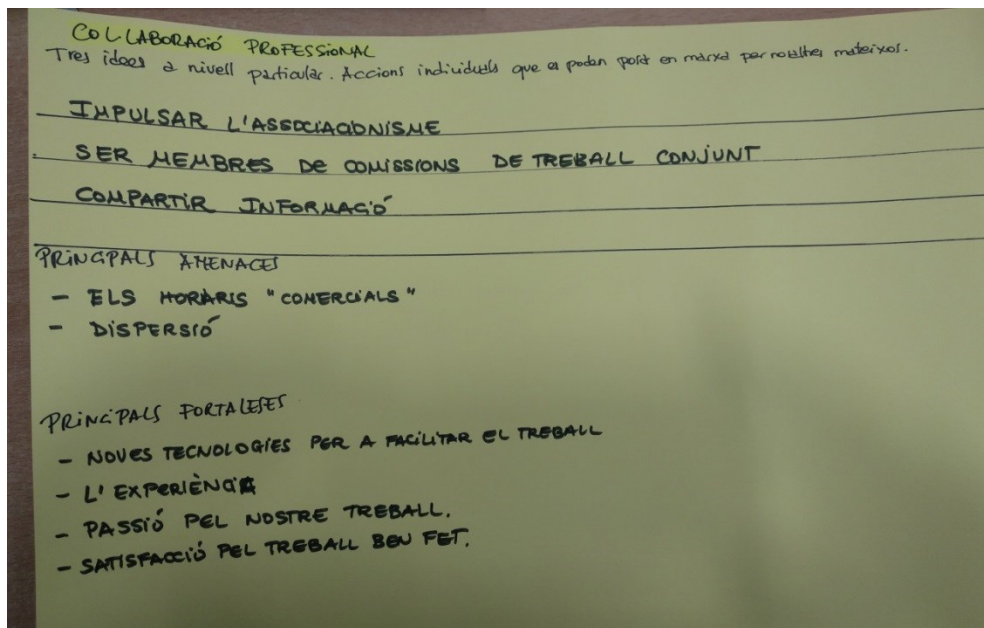 COL·LABORACIÓ PROFESSIONAL
Tres idees a nivell particular. Accions individuals que es poden posar en marxa per nosaltres mateixos.
IMPULSAR L'ASSOCIACIONISME
SER MEMBRES DE COMISSIONS DE TREBALL CONJUNT
COMPARTIR INFORMACIÓ
PRINCIPALS AMENACES
- ELS HORARIS "COMERCIALS"
- DISPERSIÓ
PRINCIPALS FORTALESES
- NOVES TECNOLOGIES PER A FACILITAR EL TREBALL
- L'EXPERIÈNCIA
- PASSIÓ PEL NOSTRE TREBALL.
- SATISFACCIÓ PEL TREBALL BEN FET.